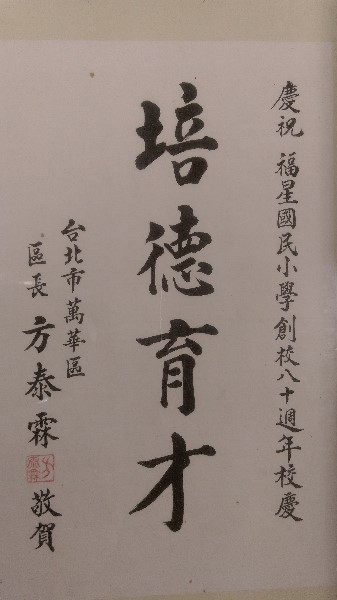 慶祝 福星國民小學創校八十週年校慶
培德育才
台北市萬華區
區長 方泰霖 敬賀